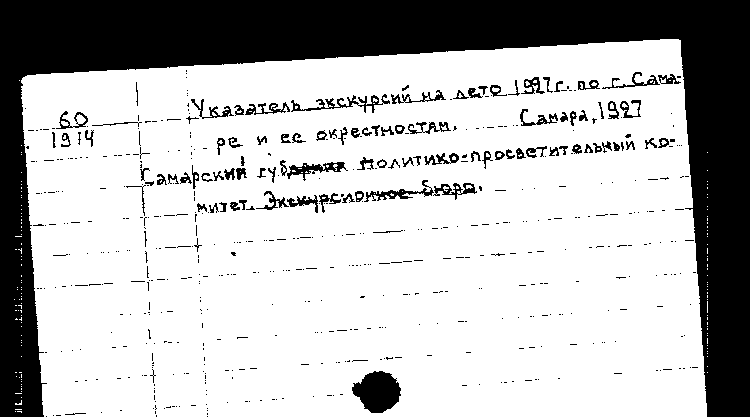 60
1914
Указатель экскурсий на лето 1927г. по г. Сама-
ре и ее окрестностям. Самара, 1927
Самарский губ политико-просветительный ко-
митет. Экскурсионное бюро.